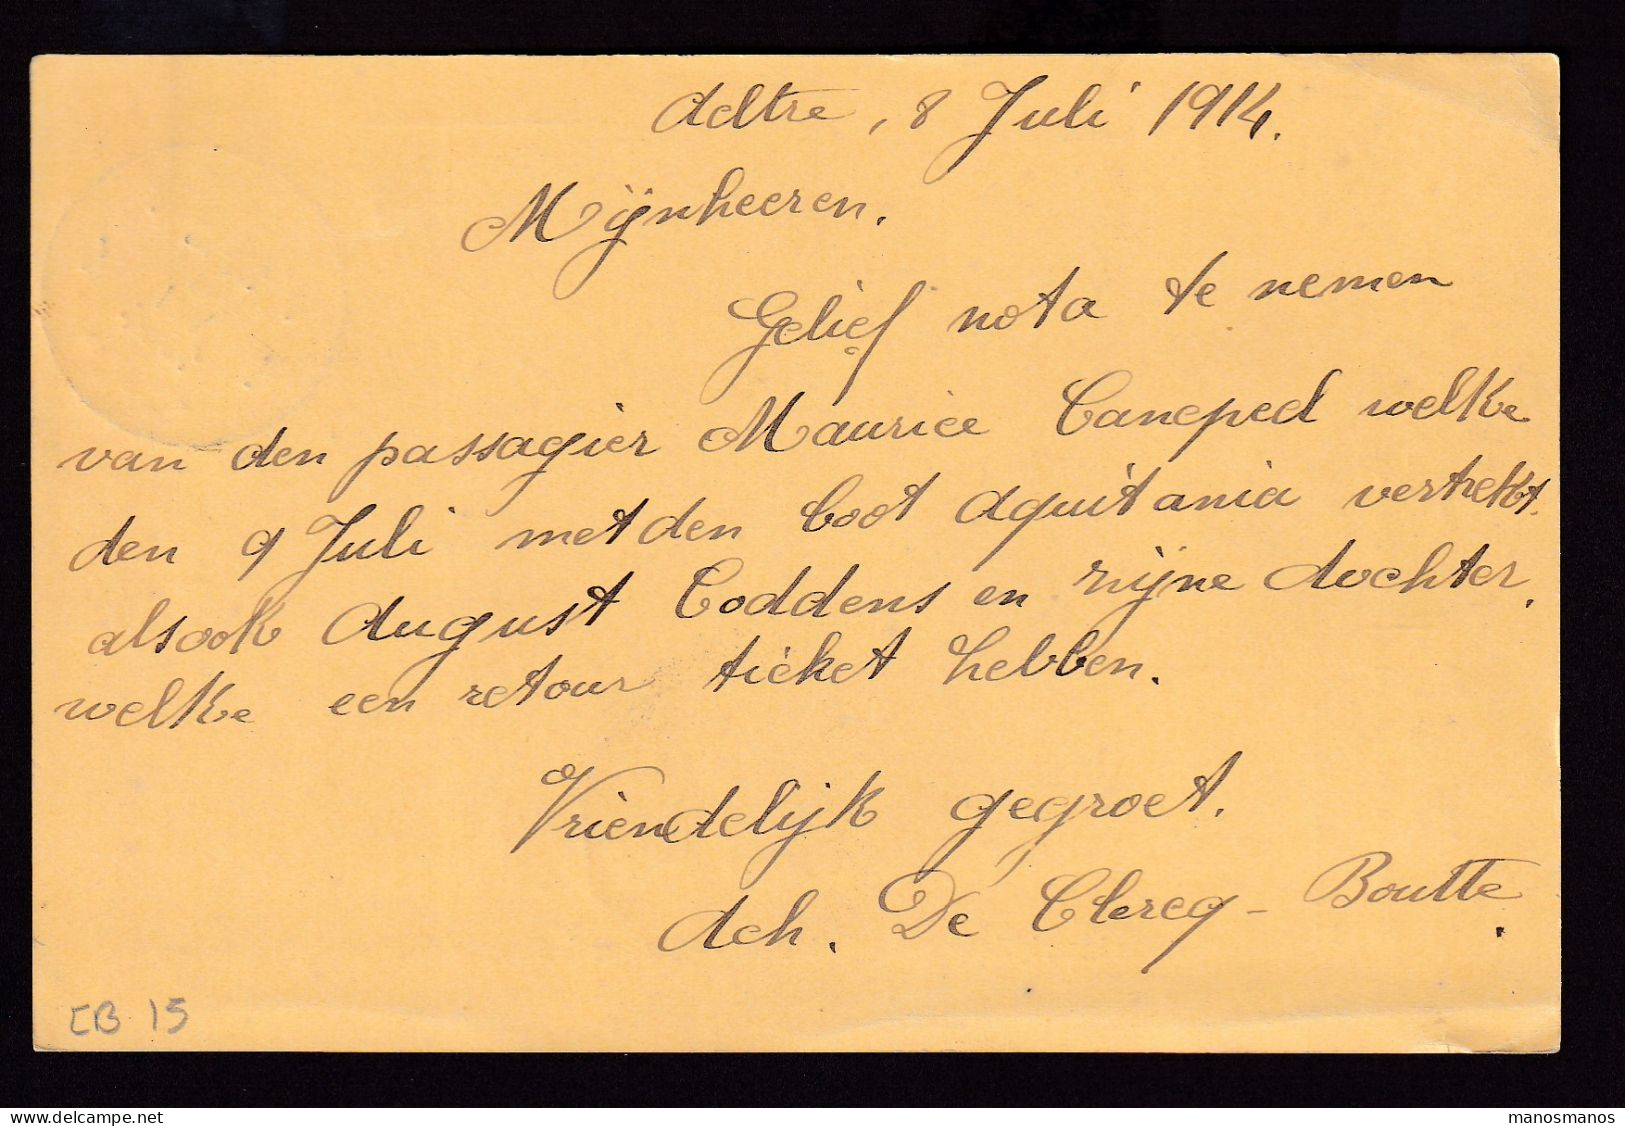 Aeltre, 8 Juli 1914.
Mijnheeren.
Gelief nota te nemen
van den passagier Maurice Canepeel welke
den 9 Juli met den boot Aquitania vertrekt.
alsook August Coddens en zijne dochter,
welke een retour ticket hebben.
Vriendelijk gegroet.
Ach. De Clercq - Boutte.
CB 15
manosmanos